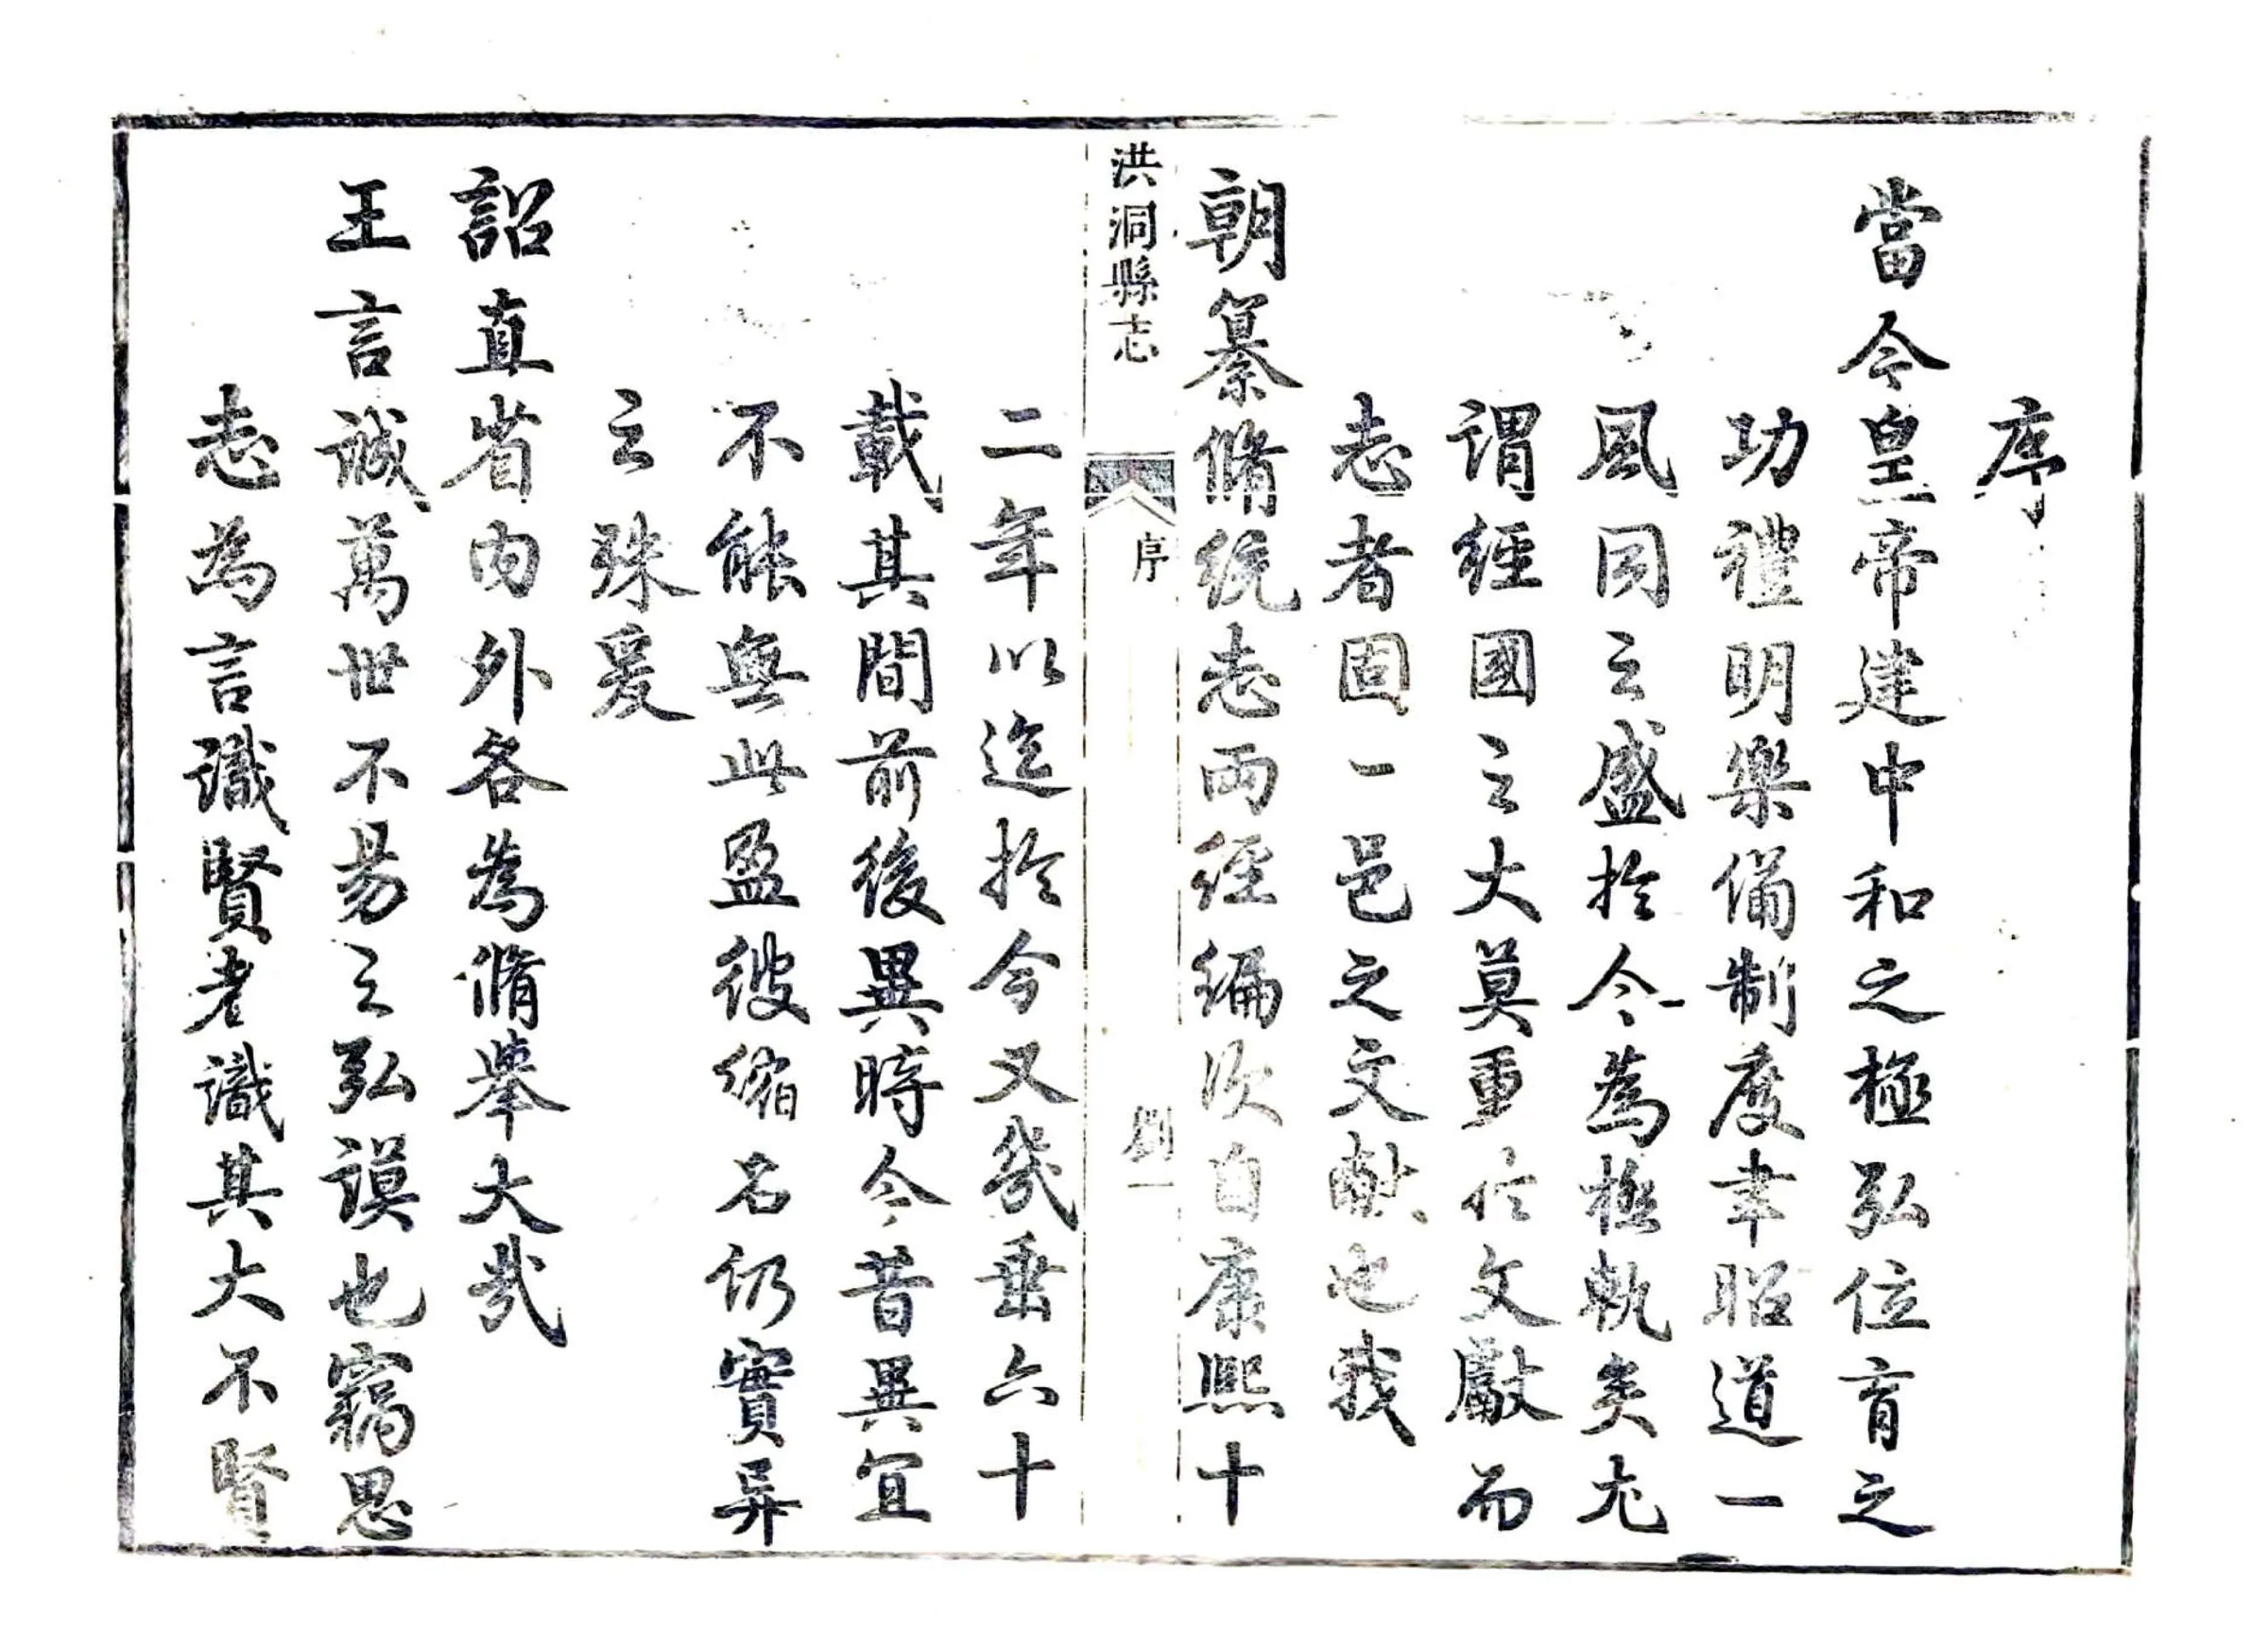 序
當今皇帝建中和之極弘位育之
功禮明樂備制度聿昭道一
風同之盛於今為極軌矣尤
謂經國之大莫重於文獻而
志者固一邑之文献也我
朝纂脩統志両經編次自康熙十
洪洞縣志
序
劉一
二年以迄於今又幾垂六十
載其間前後異時今昔異宜
不能無此盈彼縮名仍實异
之殊爰
詔直省內外各為脩舉大哉
王言誠萬世不易之弘謨也竊思
志為言識賢者識其大不賢